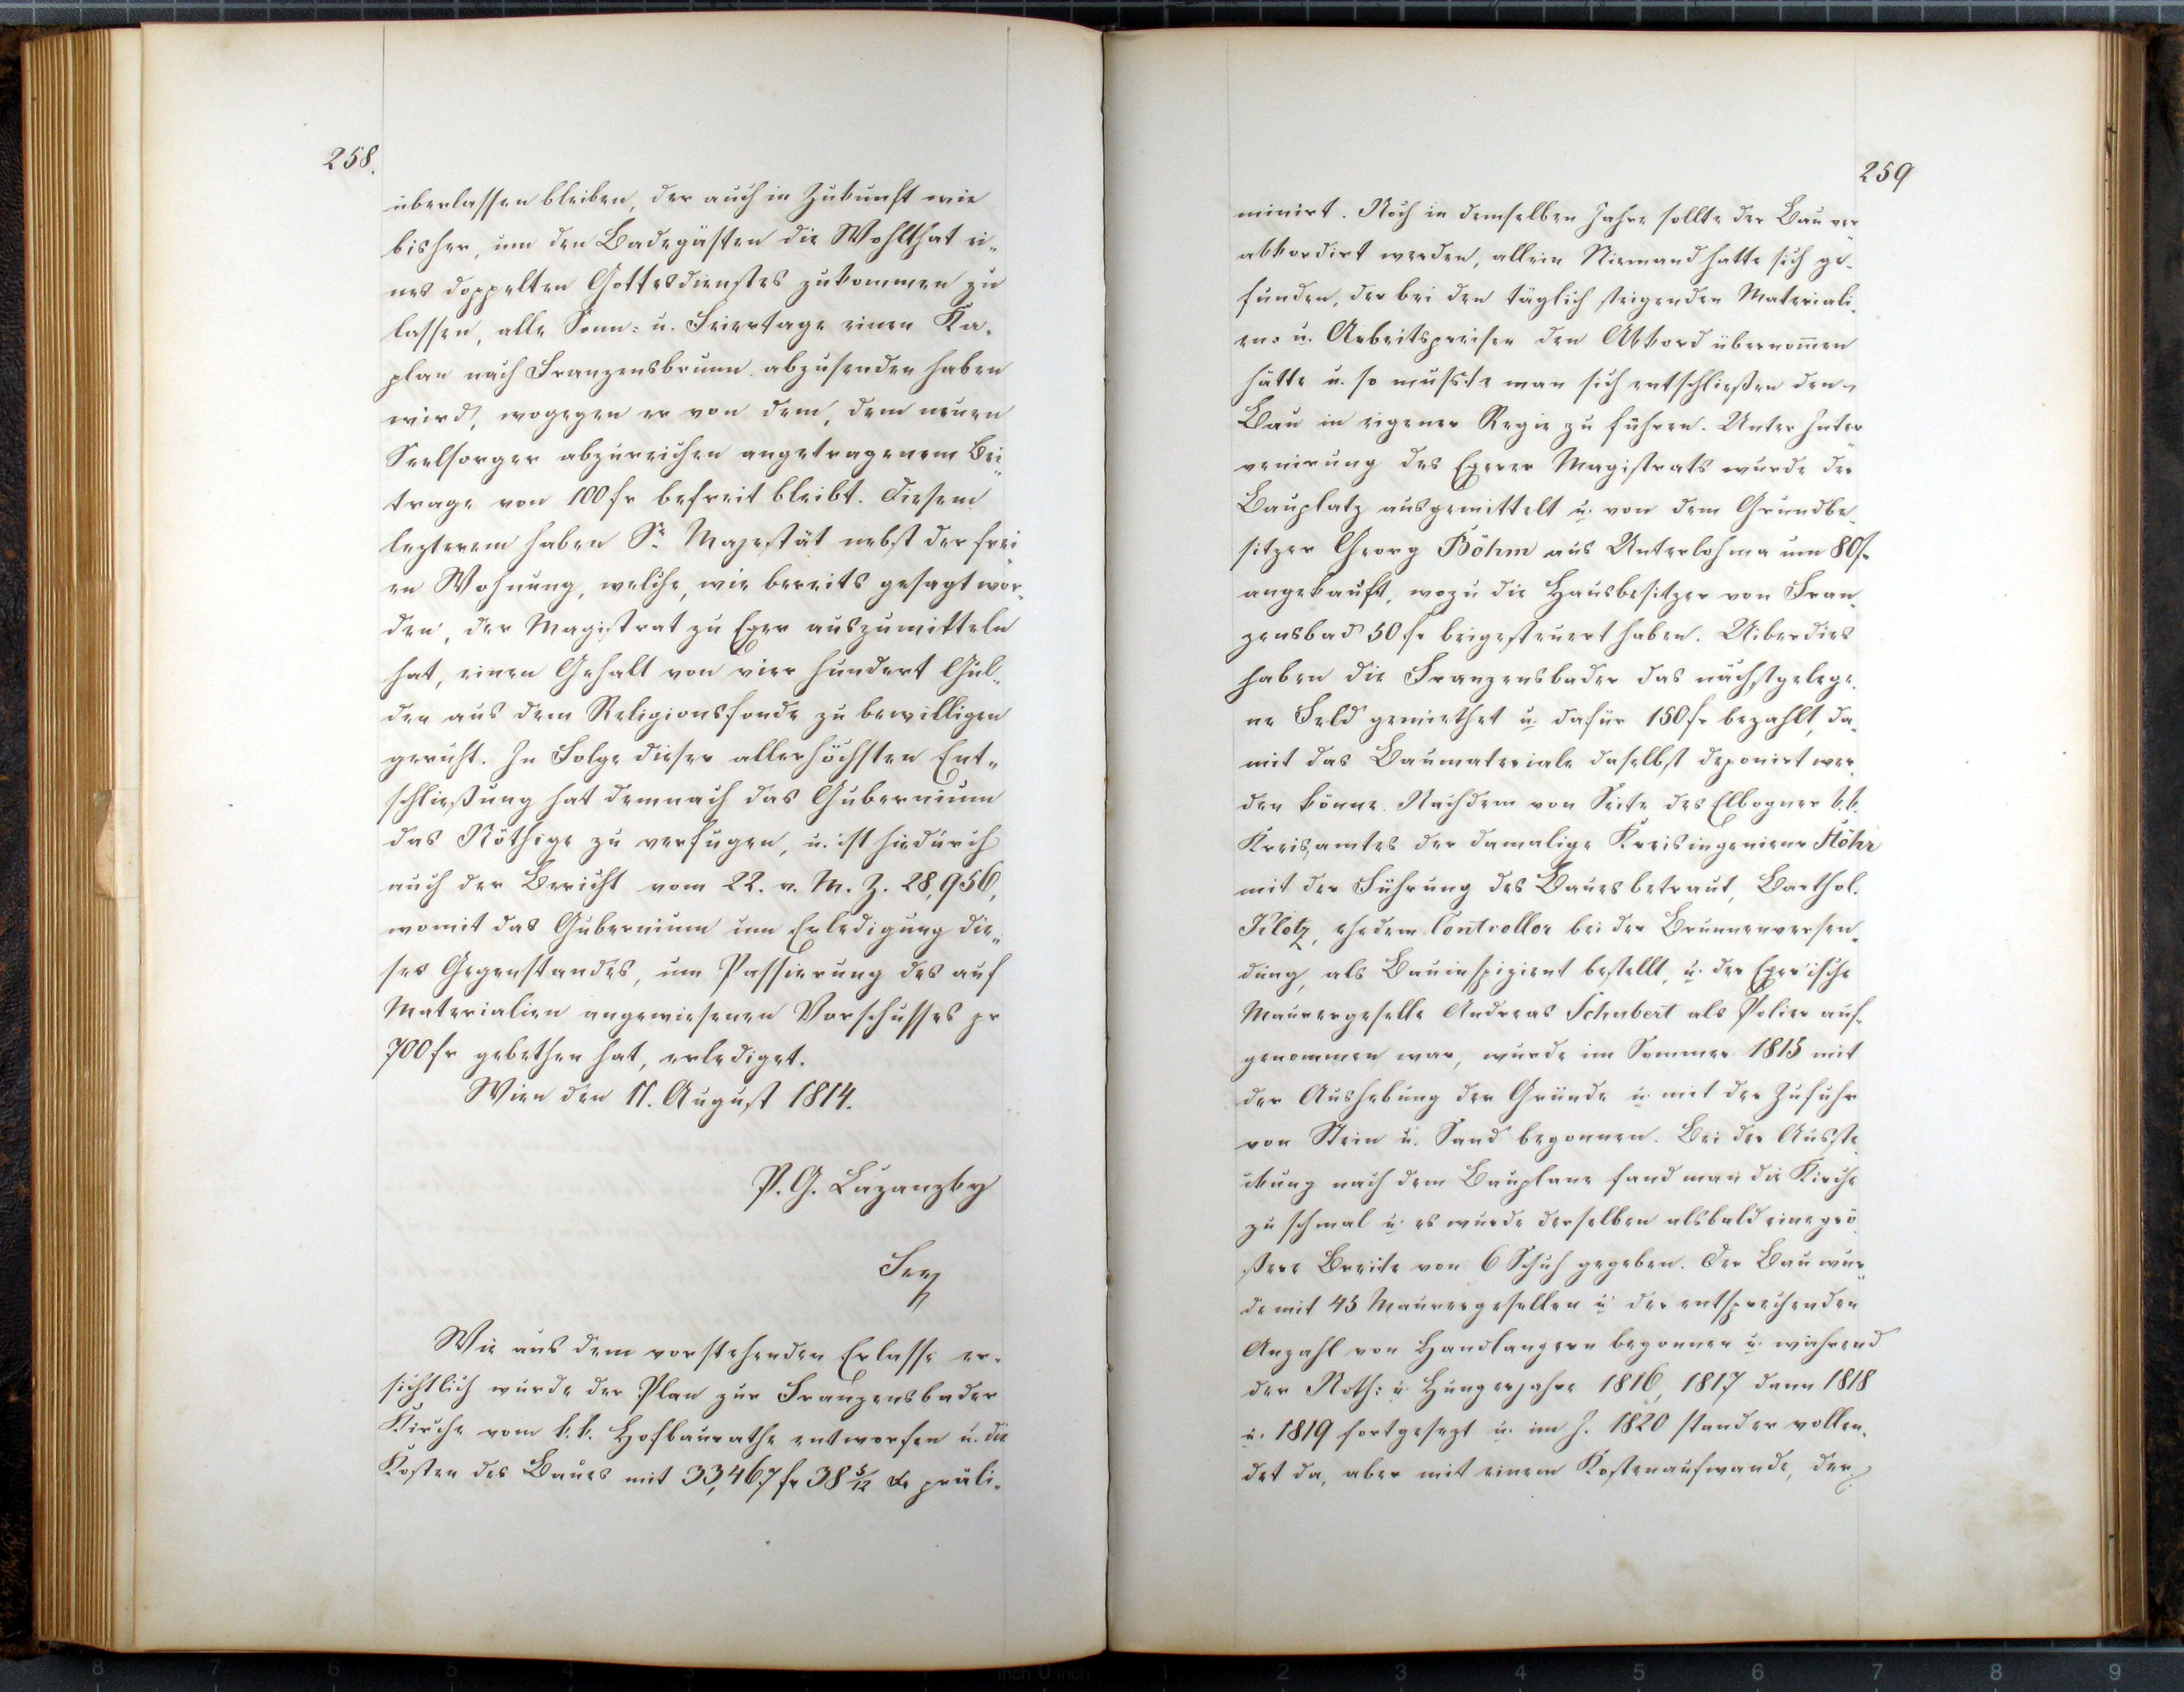 258.
überlassen bleiben, der auch in Zukunft wie
bisher, um den Badegästen die Wohlthat ei„
nes doppelten Gottesdienstes zukommen zu
lassen, alle Sonn- u. Feiertage einen Ka„
plan nach Franzensbrunn abzusenden haben
wird, wogegen er von dem, dem neuen
Seelsorger abzureichen angetragenem Bei„
trage von 100 fr befreit bleibt. Diesem
lezterem haben Se Majestät nebst der frei„
en Wohnung, welche, wie bereits gesagt wor„
den, der Magistrat zu Eger auszumitteln
hat, einen Gehalt von vier hundert Gul„
den aus dem Religionsfonde zu bewilligen
geruht. In Folge dieser allerhöchsten Ent„
schließung hat demnach das Gubernium
das Nöthige zu verfügen, u. ist hiedurch
auch der Bericht vom 22. v. M. Z. 28,956,
womit das Gubernium um Erledigung die„
ses Gegenstandes, um Passierung des auf
Materialien angewiesenen Vorschusses pr
700 fr gebethen hat, erlediget.
Wien den 11. August 1814.
P. G. Lazanzky
Wie aus dem vorstehenden Erlasse er„
sichtlich wurde der Plan zur Franzensbader
Kirche vom k. k. Hofbaurathe entworfen u. die
Kosten des Baues mit 33,467 fr 38 5/12 xr präli„
259
minirt. Noch in demselben Jahre sollte der Bau ver„
akkordirt werden, allein Niemand hatte sich ge„
funden, der bei den täglich steigenden Materiali„
en- u. Arbeitspreisen den Akkord übernom̄en
hätte u. so mußte man sich entschließen den
Bau in eigener Regie zu führen. Unter Inter„
venirung des Egerer Magistrats wurde der
Bauplatz ausgemittelt u. von dem Grundbe„
sitzer Georg Böhm aus Unterlohma um 80 fr
angekauft, wozu die Hausbesitzer von Fran„
zensbad 50 fr beigesteuert haben. Uiberdies
haben die Franzensbader das nächstgelege„
ne Feld gemiethet u. dafür 150 fr bezahlt, da„
mit das Baumateriale daselbst deponirt wer„
den könne. Nachdem von Seite des Elbogner k. k.
Kreisamtes der damalige Kreisingenieur Stöhr
mit der Führung des Baues betraut, Barthol.
Pilotz, ehedem Controllor bei der Brunnenversen„
dung, als Bauinspizient bestellt, u. der Eger'ische
Maurergeselle Andreas Schubert als Polier auf„
genommen war, wurde im Sommer 1815 mit
der Aushebung der Gründe u. mit der Zufuhr
von Stein u. Sand begonnen. Bei der Ausste„
ckung nach dem Bauplane fand man die Kirche
zu schmal u. es wurde derselben alsbald eine grö„
ßere Breite von 6 Schuh gegeben. Der Bau wur„
de mit 45 Maurergesellen u. der entsprechenden
Anzahl von Handlangern begonnen u. während
der Noth- u. Hungerjahre 1816, 1817 dann 1818
u. 1819 fortgesezt u. im J. 1820 stand er vollen„
det da, aber mit einem Kostenaufwande, der